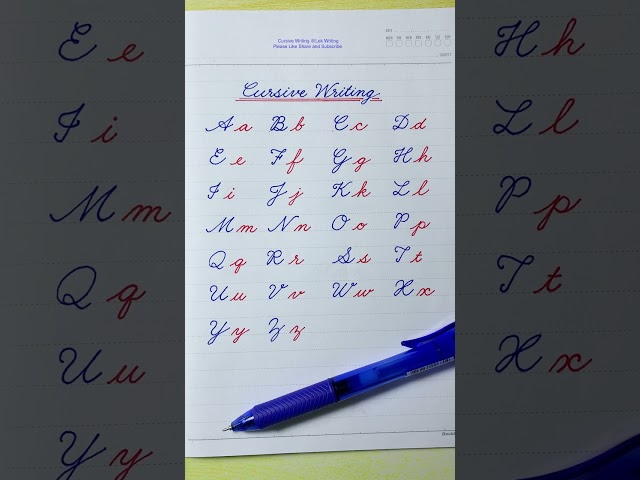 Cursive Writing @Lek Writing
Please Like Share and Subscribe
Cursive Writing
A a B b C c D d
E e F f G g H h
I i J j K k L l
M m N n O o P p
Q q R r S s T t
U u V v W w X x
Y y Z z
E e
I i
M m
Q q
U u
Y y
H h
L l
P p
T t
X x